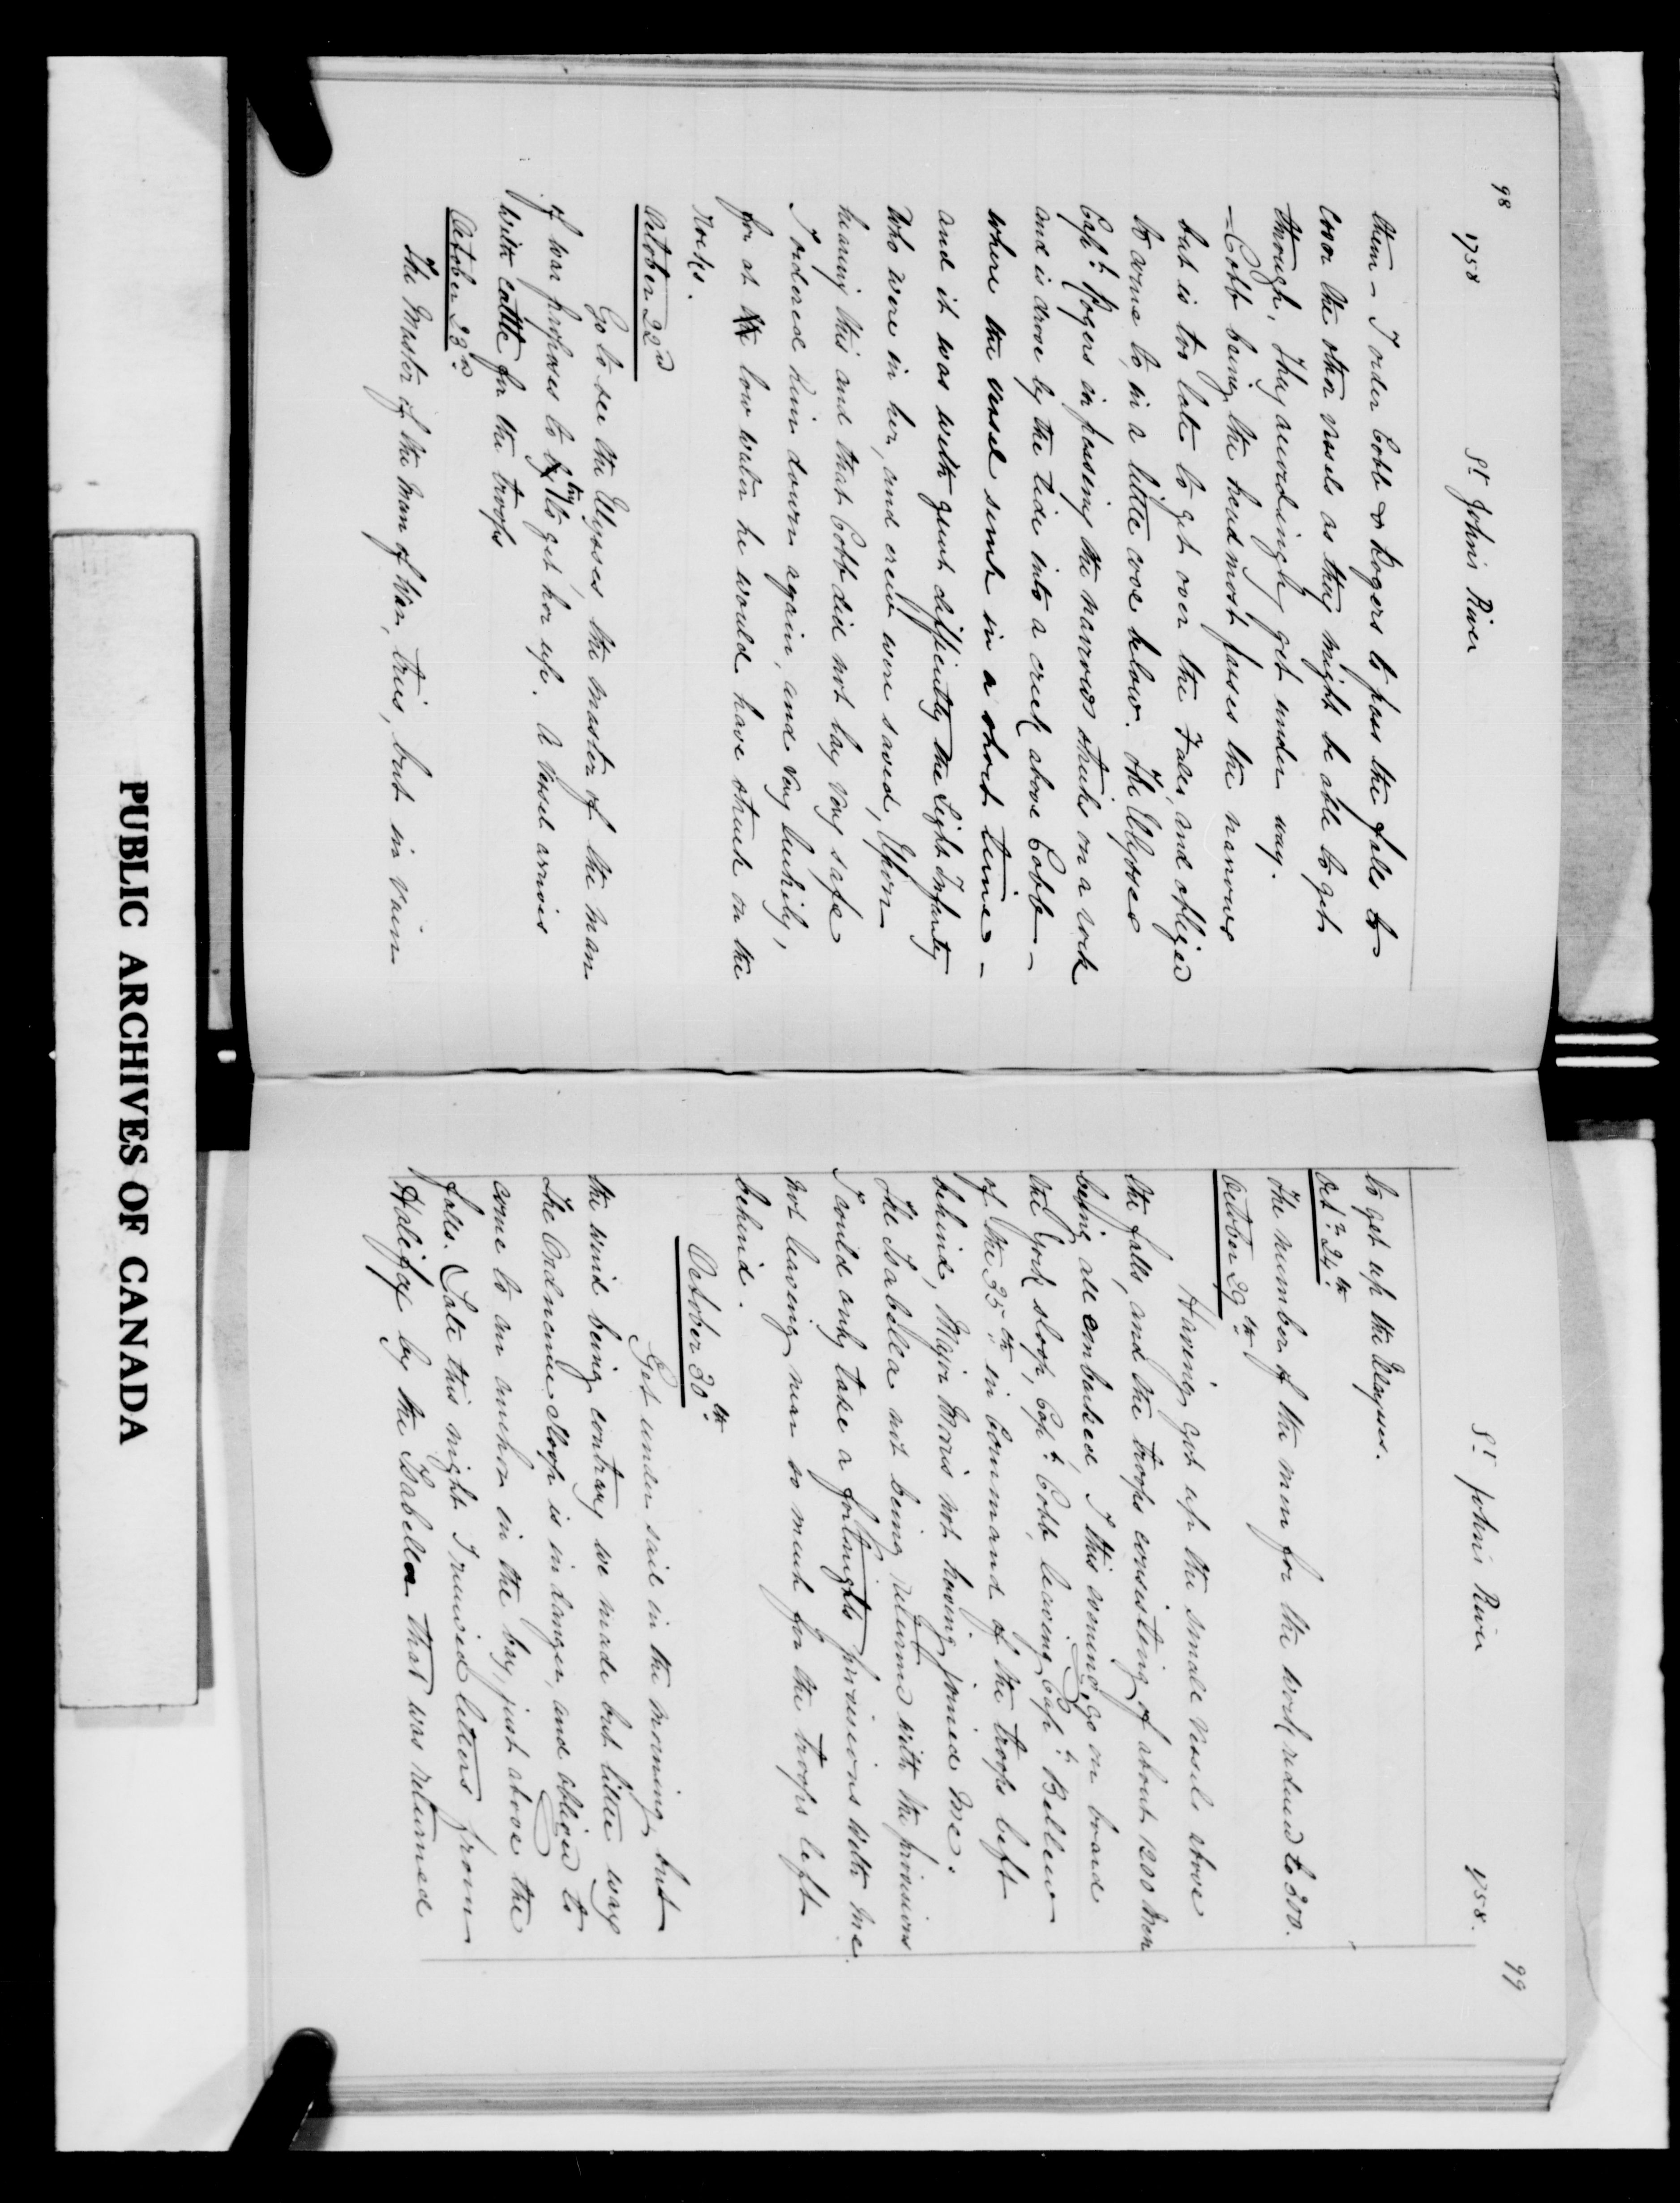 98
1758
St John's River
them – I order Cobb & Rogers to pass the falls to
cover the other vessels as they might be able to get
through, They accordingly get under way.
– Cobb being the headmost passes the narrows
but is too late to get over the Falls, and obliged
to come to, in a little cove below. The Ulysses
Capt Rogers in passing the narrows strikes on a rock
and is drove by the tide into a creek above Cobb –
where the vessel sunk in a short time –
and it was with great difficulty the Light Infantry
who were in her, and crew were saved, Upon
hearing this and that Cobb did not lay very safe
I ordered him down again, and very luckily,
for at low water he would have struck on the
rocks.
October 22d
Go to see the Ulysses the master of the man
of war proposes to try to get her up. A vessel arrives
with cattle for the troops
October 23d
The Master of the Man of War, tries, but in vain
St John's River
1758.
99
to get up the Ulysses.
Octr 24th
The number of the men for the work reduced to 300.
October 29th
Having got up the small vessels above
the falls, and the troops consisting of about 1200 men
being all embarked, I this evening, go on board
the York sloop, Capt Cobb, leaving Capt Bellew
of the 35th in Command of the troops left
behind, Major Morris not having joined me.
The Isabella not being returned with the provisions
I could only take a fortnights provisions with me
not leaving near so much for the troops left
behind.
October 30th
Get under sail in the morning, but
the wind being contrary we made but little way
The Ordnance sloop is in danger, and obliged to
come to an anchor in the bay, just above the
falls. Late this night I received letters from
Halifax by the Isabella that was returned
PUBLIC ARCHIVES OF CANADA